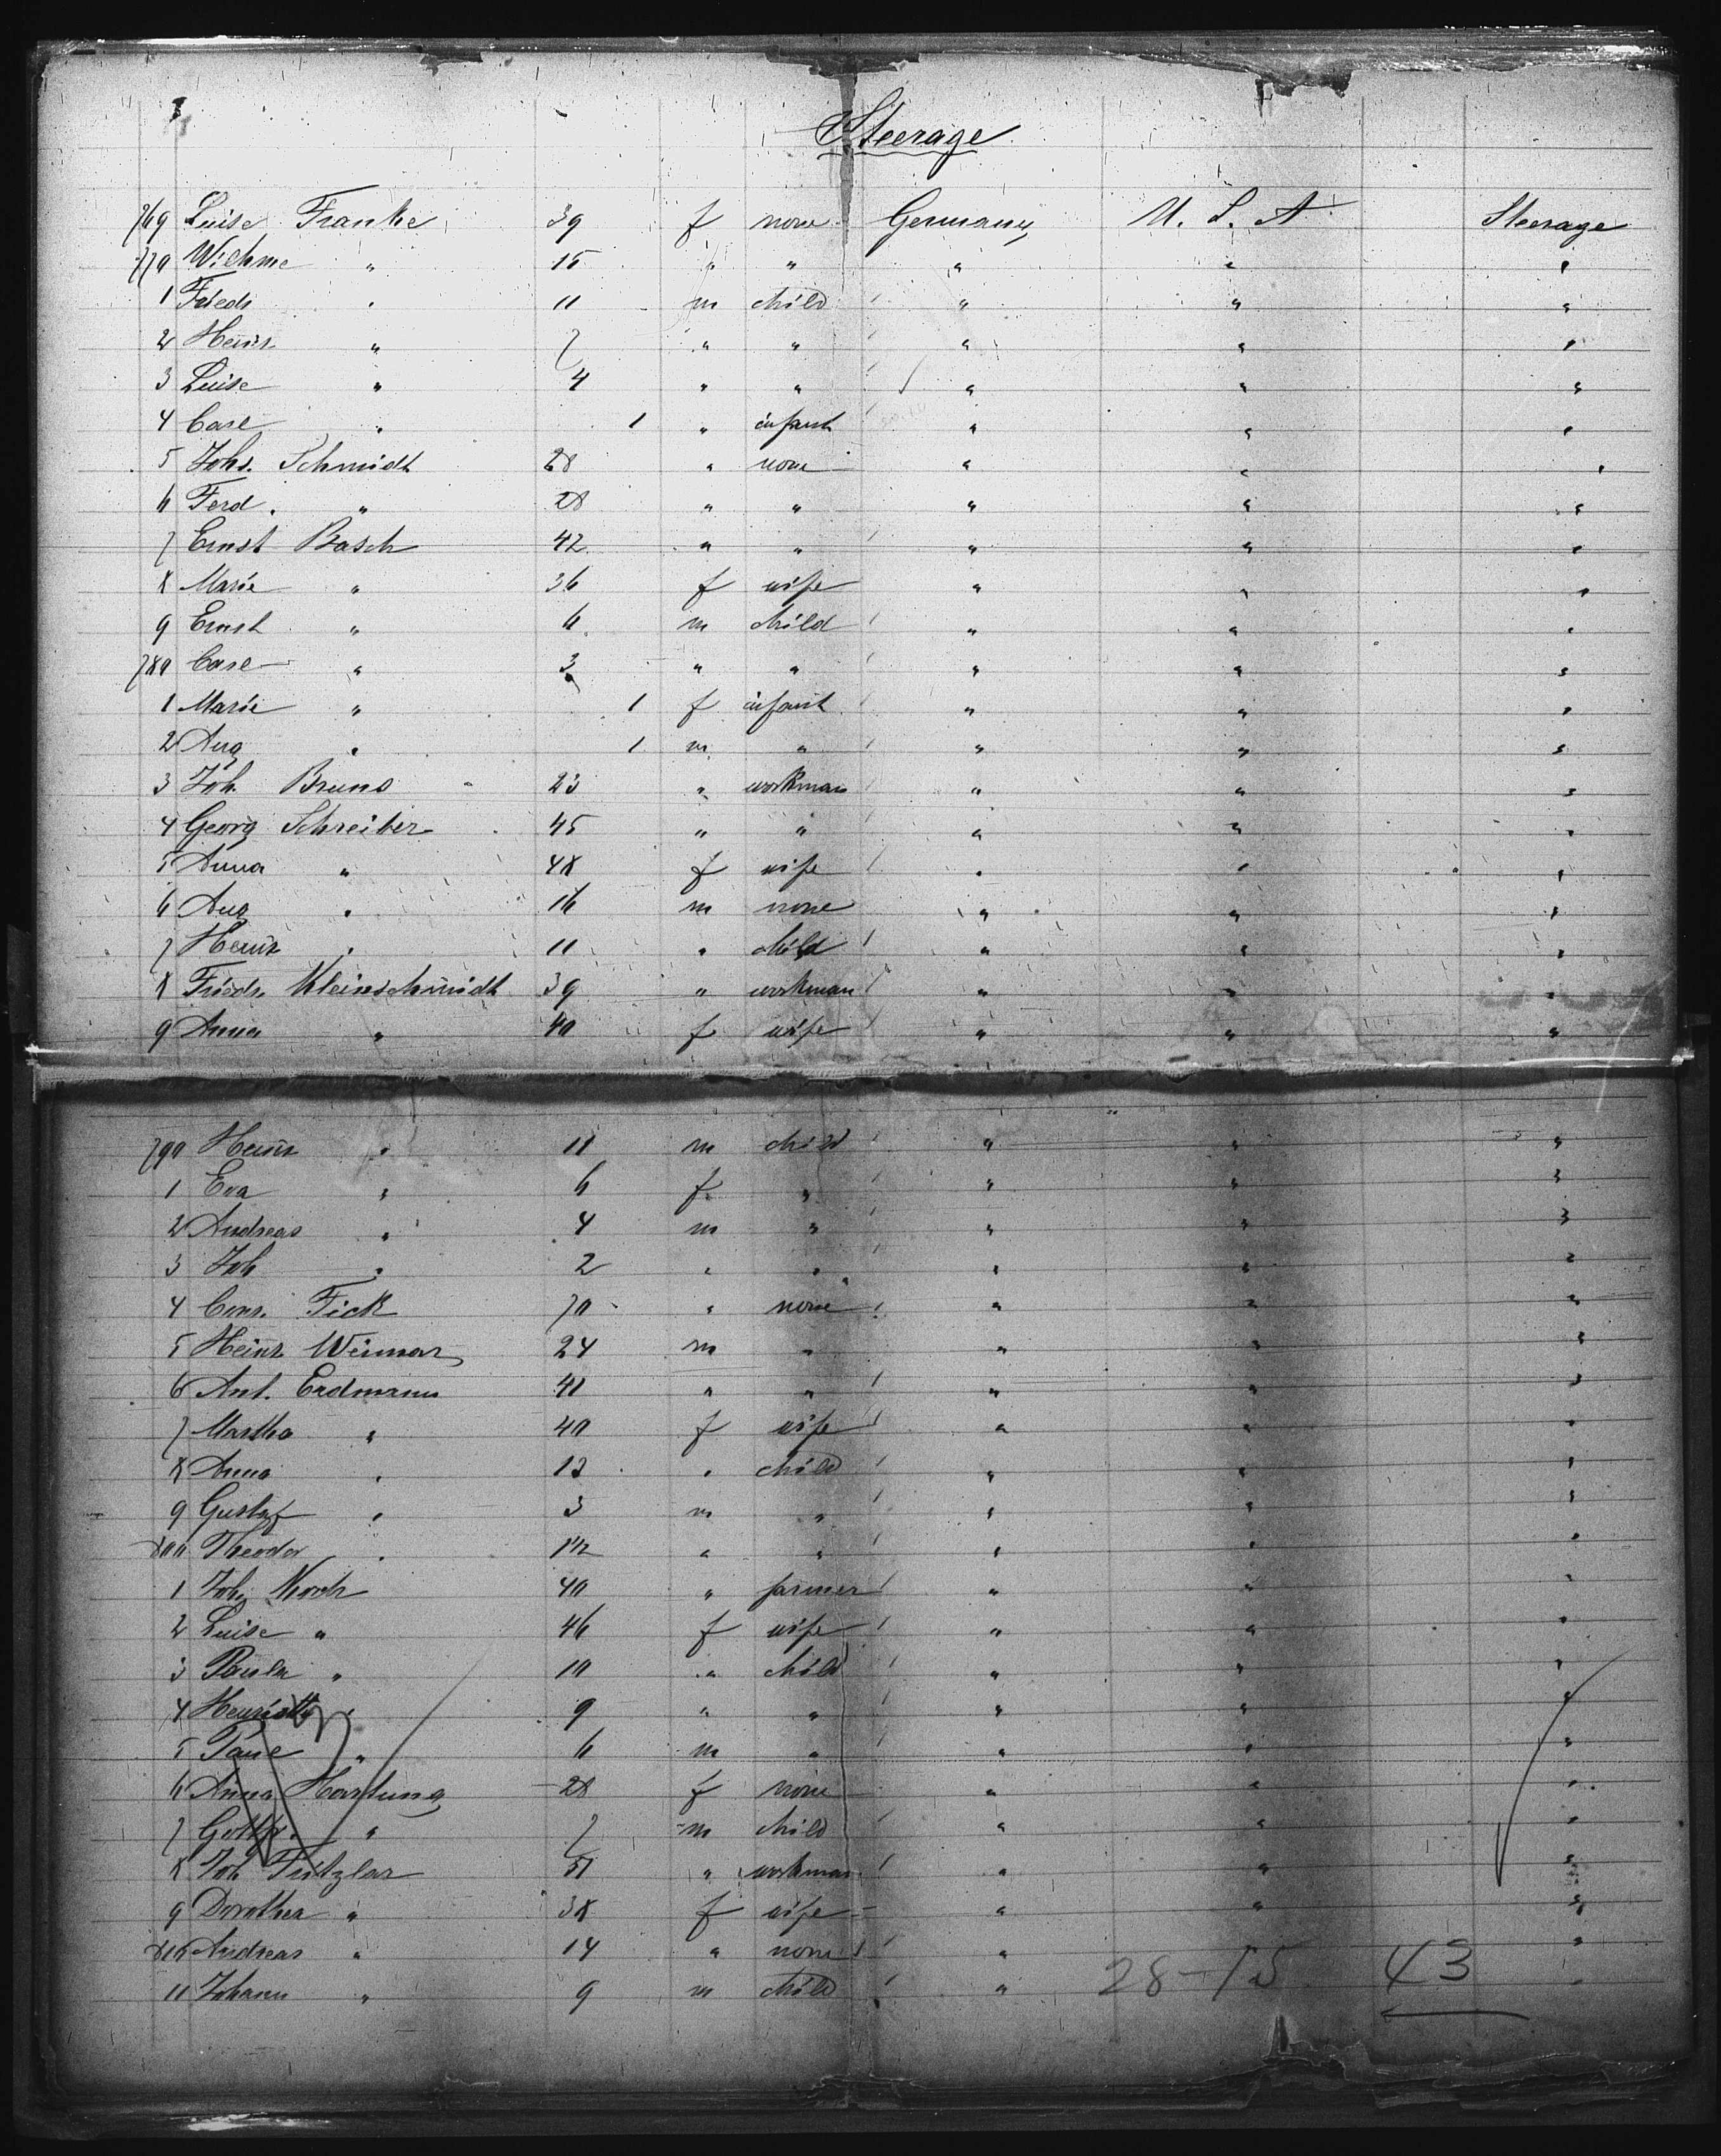 Steerage
769 Luise Franke 39 f none Germany U. S. A. Steerage
770 Wilhme " 15 " " " " "
1 Friedr " 11 m child " " "
2 Heinr " 7 " " " " "
3 Luise " 4 " " " " "
4 Carl " 1 " infant " " "
5 Johs. Schmidt 28 " none " " "
6 Ferd. " 28 " " " " "
7 Ernst Basch 42 " " " " "
8 Marie " 36 f wife " " "
9 Ernst " 6 m child " " "
780 Carl " 3 " " " " "
1 Marie " 1 f infant " " "
2 Aug " 1 m " " " "
3 Joh. Bruns 23 " workman " " "
4 Georg Schreiber 45 " " " " "
5 Anna " 48 f wife " " "
6 Aug " 16 m none " " "
7 Heinr " 11 " child " " "
8 Friedr. Kleinschmidt 39 " workman " " "
9 Anna " 40 f wife " " "
790 Heinr " 11 m child " " "
1 Eva " 6 f " " " "
2 Andreas " 4 m " " " "
3 Joh " 2 " " " " "
4 Conr. Fick 70 " none " " "
5 Heinr Weimar 24 m " " " "
6 Ant. Erdmann 41 " " " " "
7 Martha " 40 f wife " " "
8 Anna " 12 " child " " "
9 Gustaf " 3 m " " " "
800 Theodor " " " " " "
1 Joh. Koch 40 " farmer " " "
2 Luise " 46 f wife " " "
3 Paula " 10 " child " " "
4 Henriette " 9 " " " " "
5 Paul " 6 m " " " "
6 Anna Hartung 28 f none " " "
7 Gottfr. " 7 m child " " "
8 Joh Fritzlar 51 " workman " " "
9 Dorothea " 38 f wife " " "
810 Andreas " 14 " none " "
11 Johann " 9 m child " "
28-15 43